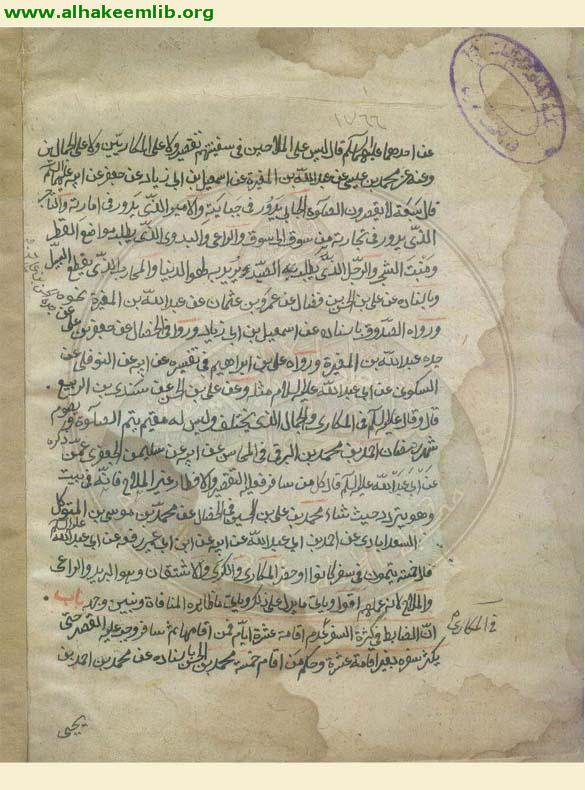 www.alhakeemlib.org
١٧٦٦
عن احدهما عليهما السلم قال ليس على الملاحين في سفينتهم تقصير ولا على المكاريين ولا على الجمالين
وعنه عن محمد بن عيسى عن عبد الله بن المغيرة عن اسمعيل بن ابي زياد عن جعفر عن ابيه عليهما السلم
قال سبعة لا يقصرون الصلوة الجابي يدور في جبايته والامير الذي يدور في امارته والتاجر
الذي يدور في تجارته من سوق الى سوق والراعي والبدوي الذي يطلب مواضع القطر
ومنبت الشجر والرجل الذي يطلب الصيد يريد به لهو الدنيا والمحارب الذي يقطع السبيل
وباسناده عن علي بن الحسن بن فضال عن عمرو بن عثمان عن عبد الله بن المغيرة نحوه
ورواه الصدوق باسناده عن اسمعيل بن ابي زياد ورواه في الخصال عن جعفر بن علي عن
جده عبد الله بن المغيرة ورواه علي بن ابراهيم في تفسيره عن ابيه عن النوفلي عن
السكوني عن ابي عبد الله عليه السلام مثله وعن علي بن الحسن عن سندي بن الربيع
قال وقال عليه السلم في المكاري والجمال الذي يختلف وليس له مقيم يتم الصلوة ويصوم
شهر رمضان احمد بن محمد بن البرقي في المحاسن عن ابيه عن سليمن الجعفري عمن ذكره
عن ابي عبد الله عليه السلم قال كل من سافر فعليه التقصير والافطار غير الملاح فانه في بيت
وهو يتردد حيث شاء محمد بن علي بن الحسين في الخصال عن محمد بن موسى بن المتوكل
السعدابادي عن احمد بن ابي عبد الله عن ابيه عن ابن ابي عمير رفعه عن ابي عبد الله عليه السلم
قال خمسة يتمون في سفر كانوا او حضر المكاري والكري والاشتقان وهو البريد والراعي
والملاح لانه عملهم اقول وياتي ما يدل على ذلك وياتي ما ظاهره المنافاة ونبين وجهه باب
ان الضابط في كثرة السفر عدم اقامة عشرة ايام فمن اقامها ثم سافر وجب عليه القصر حتى
يكثر سفره بغير اقامة عشرة وحكم من اقام خمسة محمد بن الحسن باسناده عن محمد بن احمد بن
في المكاري
يحيى